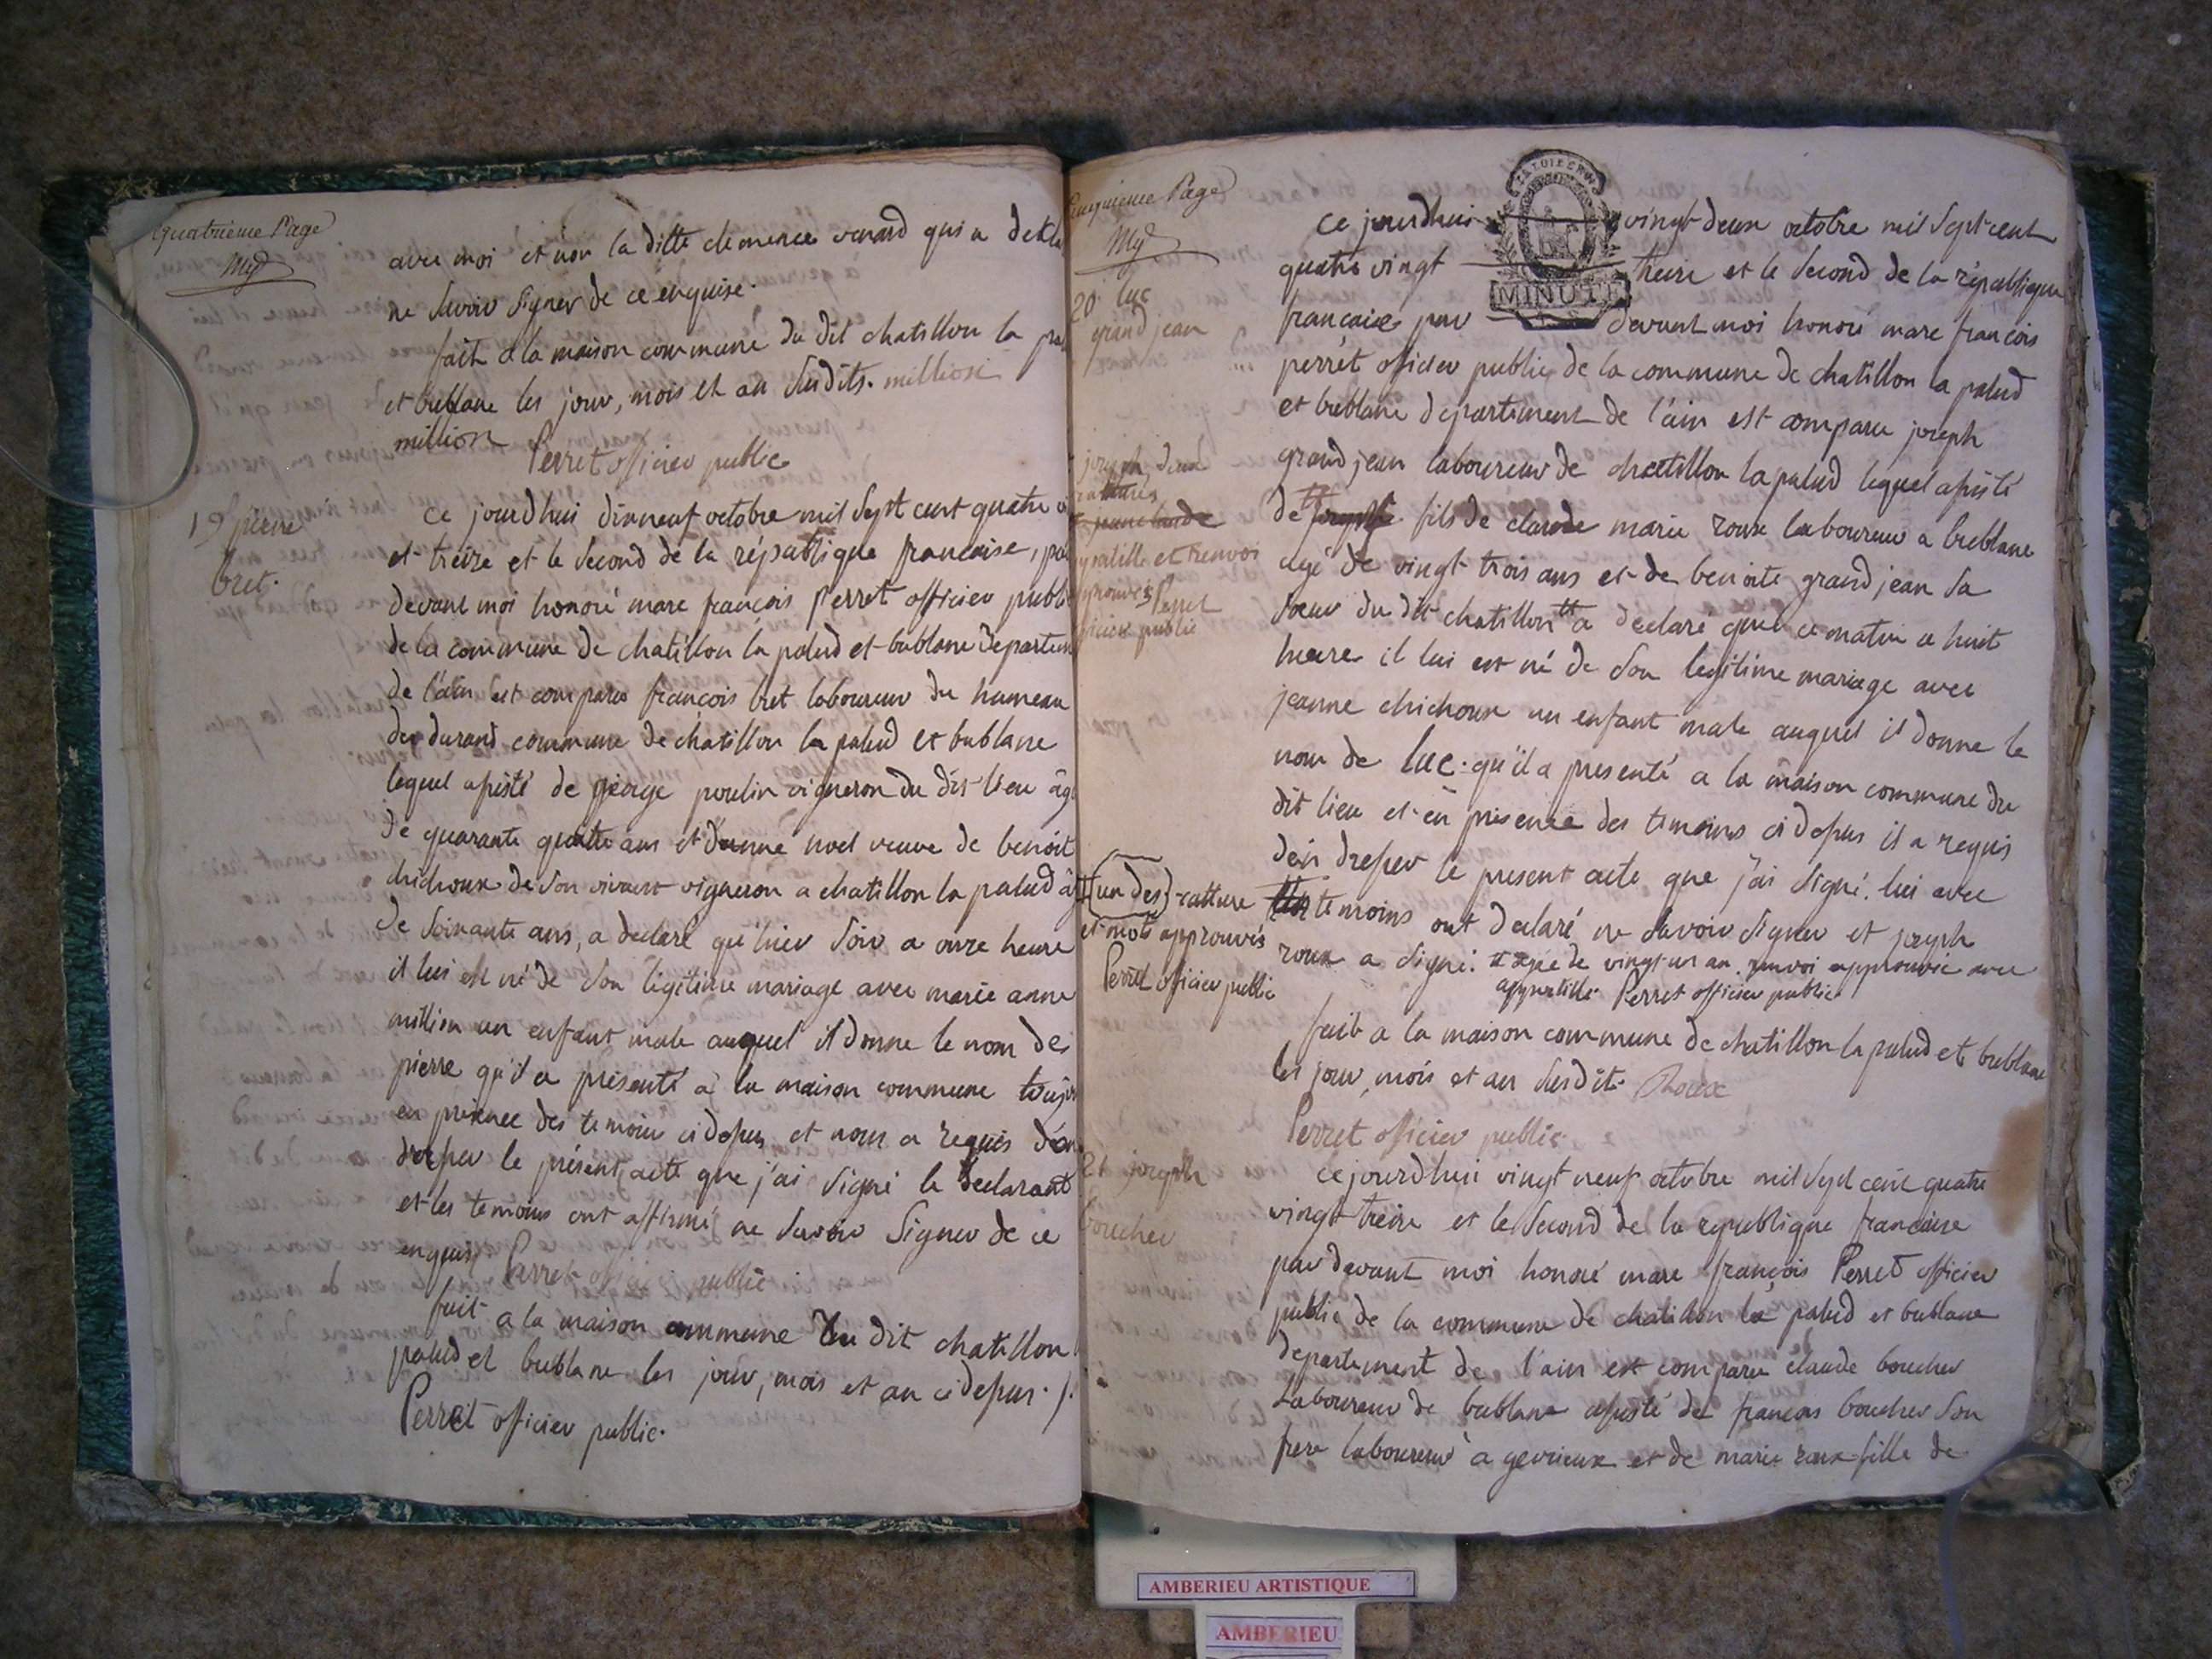 quatrieme Page
avec moi et non la ditte clemence venard qui a
ne Savoir Signer de ce enquise.
fait a la maison commune du dit chatillon la
et bublane les jour, mois et an Susdits. million
million
Perret officier public
19 pierre
bret.
ce jourdhui dixneuf octobre mil Sept cent quatre
et treize et le Second de la république francaise,
devant moi honoré marc françois Perret officier
de la commune de chatillon la palud et bublane
de l'ain est comparu françois bret laboureur du hameau
du durand commune de chatillon la palud et bublane
lequel assisté de george poulin vigneron du dit lieu
de quarante quatre ans et noel veuve de benoit
chichoux de Son vivant vigneron a chatillon la palud
de Soixante ans, a declaré qu'hier Soir a onze heure
il lui est né de Son légitime mariage avec marie anne
million un enfant male auquel il donne le nom de
pierre qu'il a présenté a la maison commune
en présence des temoins ci dessus et nous a requis d'en
dresser le présent acte que j'ai Signé le declarant
et les temoins ont affirmé ne Savoir Signer de ce
enquis Perret officier public
fait a la maison commune du dit chatillon
palud et bublane les jour, mois et an ci dessus
Perret officier public.
cinquieme Page
20 luc
grand jean
ce jourdhui vingt deux octobre mil Sept cent
quatre vingt treize et le Second de la république
francaise par devant moi honoré marc françois
MINUTE
perret officier public de la commune de chatillon la palud
et bublane departement de l'ain est comparu joseph
grand jean laboureur de chatillon la palud lequel assisté
de joseph fils de claude marie roux laboureur a bublane
agé de vingt trois ans et de benoite grand jean Sa
Soeur du dit chatillon # a declaré que ce matin a huit
heures il lui est né de Son legitime mariage avec
jeanne chichoux un enfant male auquel il donne le
nom de luc. qu'il a presenté a la maison commune du
dit lieu et en presence des temoins ci dessus il a requis
d'en dresser le present acte que j'ai Signé. lui avec
temoins ont declaré ne Savoir Signer et joseph
roux a Signé. # agée de vingt un an renvoi approuvé avec
Perret officier public
joseph deux
et renvoi
Perret
public
(un des) rature
et mots approuvés
Perret officier public
fait a la maison commune de chatillon la palud et bublane
les jour, mois et an Susdit. Roux
Perret officier public
21 joseph
boucher
ce jourdhui vingt neuf octobre mil Sept cent quatre
vingt treize et le Second de la republique francaise
par devant moi honoré marc françois Perret officier
public de la commune de chatillon la palud et bublane
departement de l'ain est comparu claude boucher
Laboureur de bublane assisté de francois boucher Son
frere laboureur a gevrieux et de marie roux fille de
AMBERIEU ARTISTIQUE
AMBERIEU